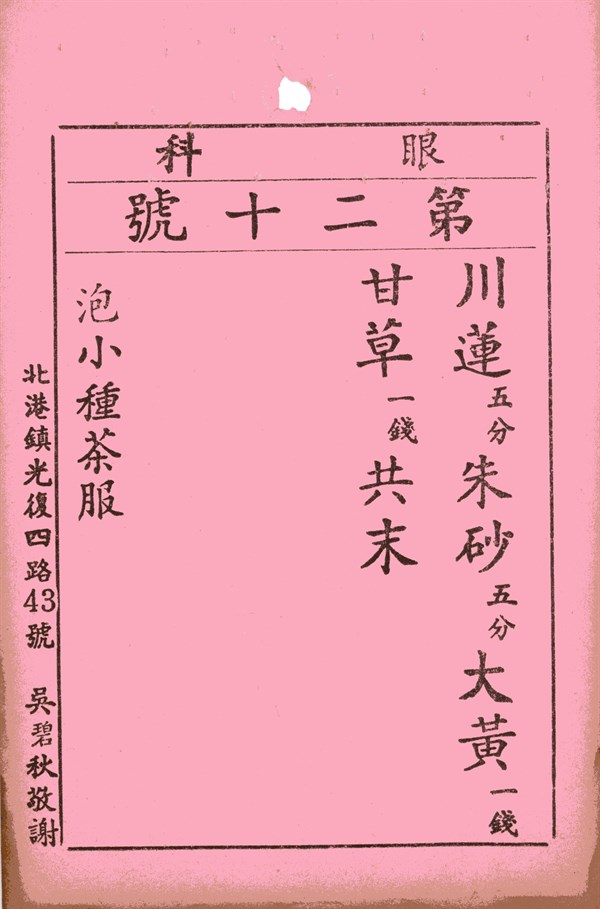 眼科
第二十號
川蓮五分朱砂五分大黃一錢
甘草一錢共末
泡小種茶服
北港鎮光復四路43號 吳碧秋敬謝